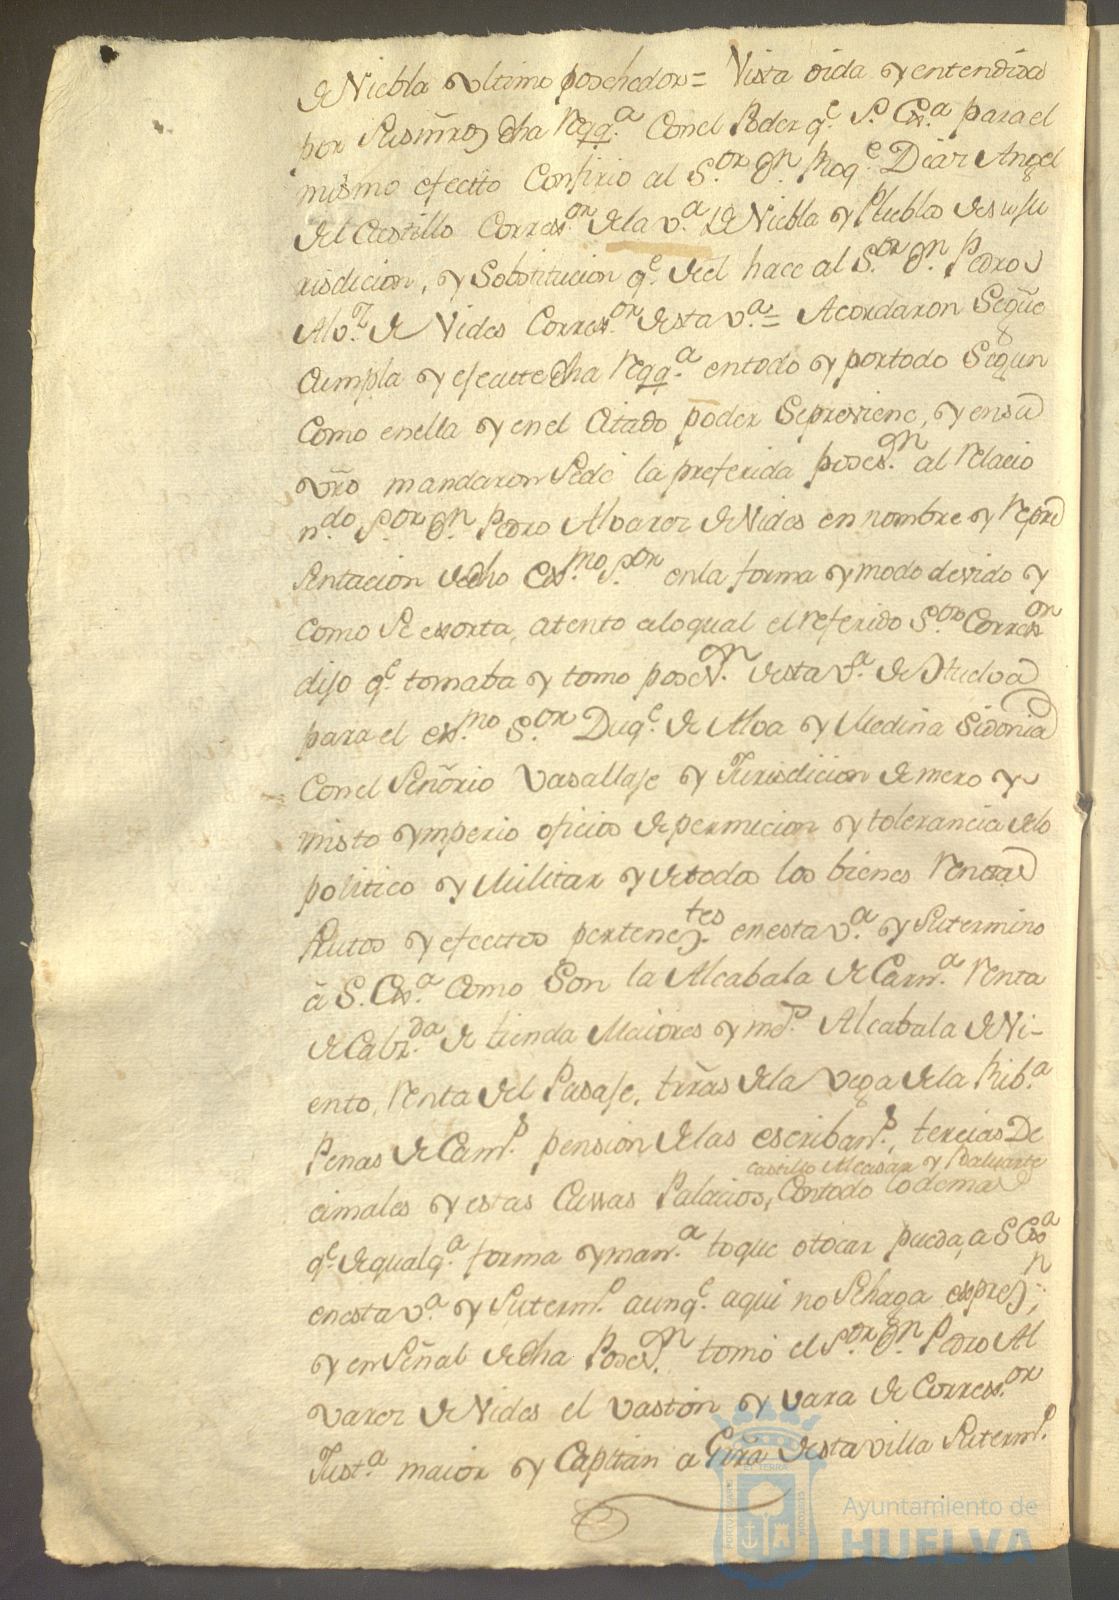 de Niebla vltimo poschedor = Vista oida y entendida
por Susmrs dha reqq.a Con el Poder q.e S. Ex.a para el
mismo efectto Confirio al S.or D.n Roq.e Diaz Angel
del Castillo Correx.or de la v.a de Niebla y Pueblos de su ju
risdicion, y Sobstitucion q.e del hace al S.or D.n Pedro
Alv.z de Vides Correx.or desta v.a = Acordaron Seg.e
Cumpla y efecutte dha reqq.a en todo y por todo Segun
Como en ella y en el Citado poder Sepreviene, y en sa
vro mandaron Sedé la preferida poses.on al relacio
n.do S.or D.n Pedro Alvarez de Vides en nombre y repre
sentacion de dho Ex.mo S.or en la forma y modo devido y
Como Se exorta, atento alo qual el referido S.or Correx.or
dijo q.e tomaba y tomo poses.n desta v.a de Huelva
para el ex.mo S.or Duq.e de Alva y Medina Sidonia
Con el Señorio Vasallaje y Jurisdicion de mero y
misto ymperio oficios de permicion y tolerancia delo
politico y Militar y de todos los bienes Rentas
frutos y efecttos pertenez.tes en esta v.a y Sutermino
á S. Ex.a Como Son la Alcabala de Carn.a renta
de Cabz.da de tienda Maiores y m.s Alcabala de Vi-
ento, renta del Pasaje, trras de la Vega de la Rib.a
Penas de Cam.s pension de las escriban.s, tercias De
castillo Alcasar y Baluarte
cimales y estas Cassas Palacios, Con todo lo demas
q.e de qualq.a forma y man.a toque o tocar pueda, a S Ex.a
en esta v.a y Suterm.o aunq.e aqui no Sehaga expres.n;
y en Señal de dha Poses.n tomó el S.or D.n Pedro Al
varez de Vides el vaston y vara de Correx.or
Just.a maior y Capitan a Grra desta villa Suterm.o
Ayuntamiento de
HUELVA